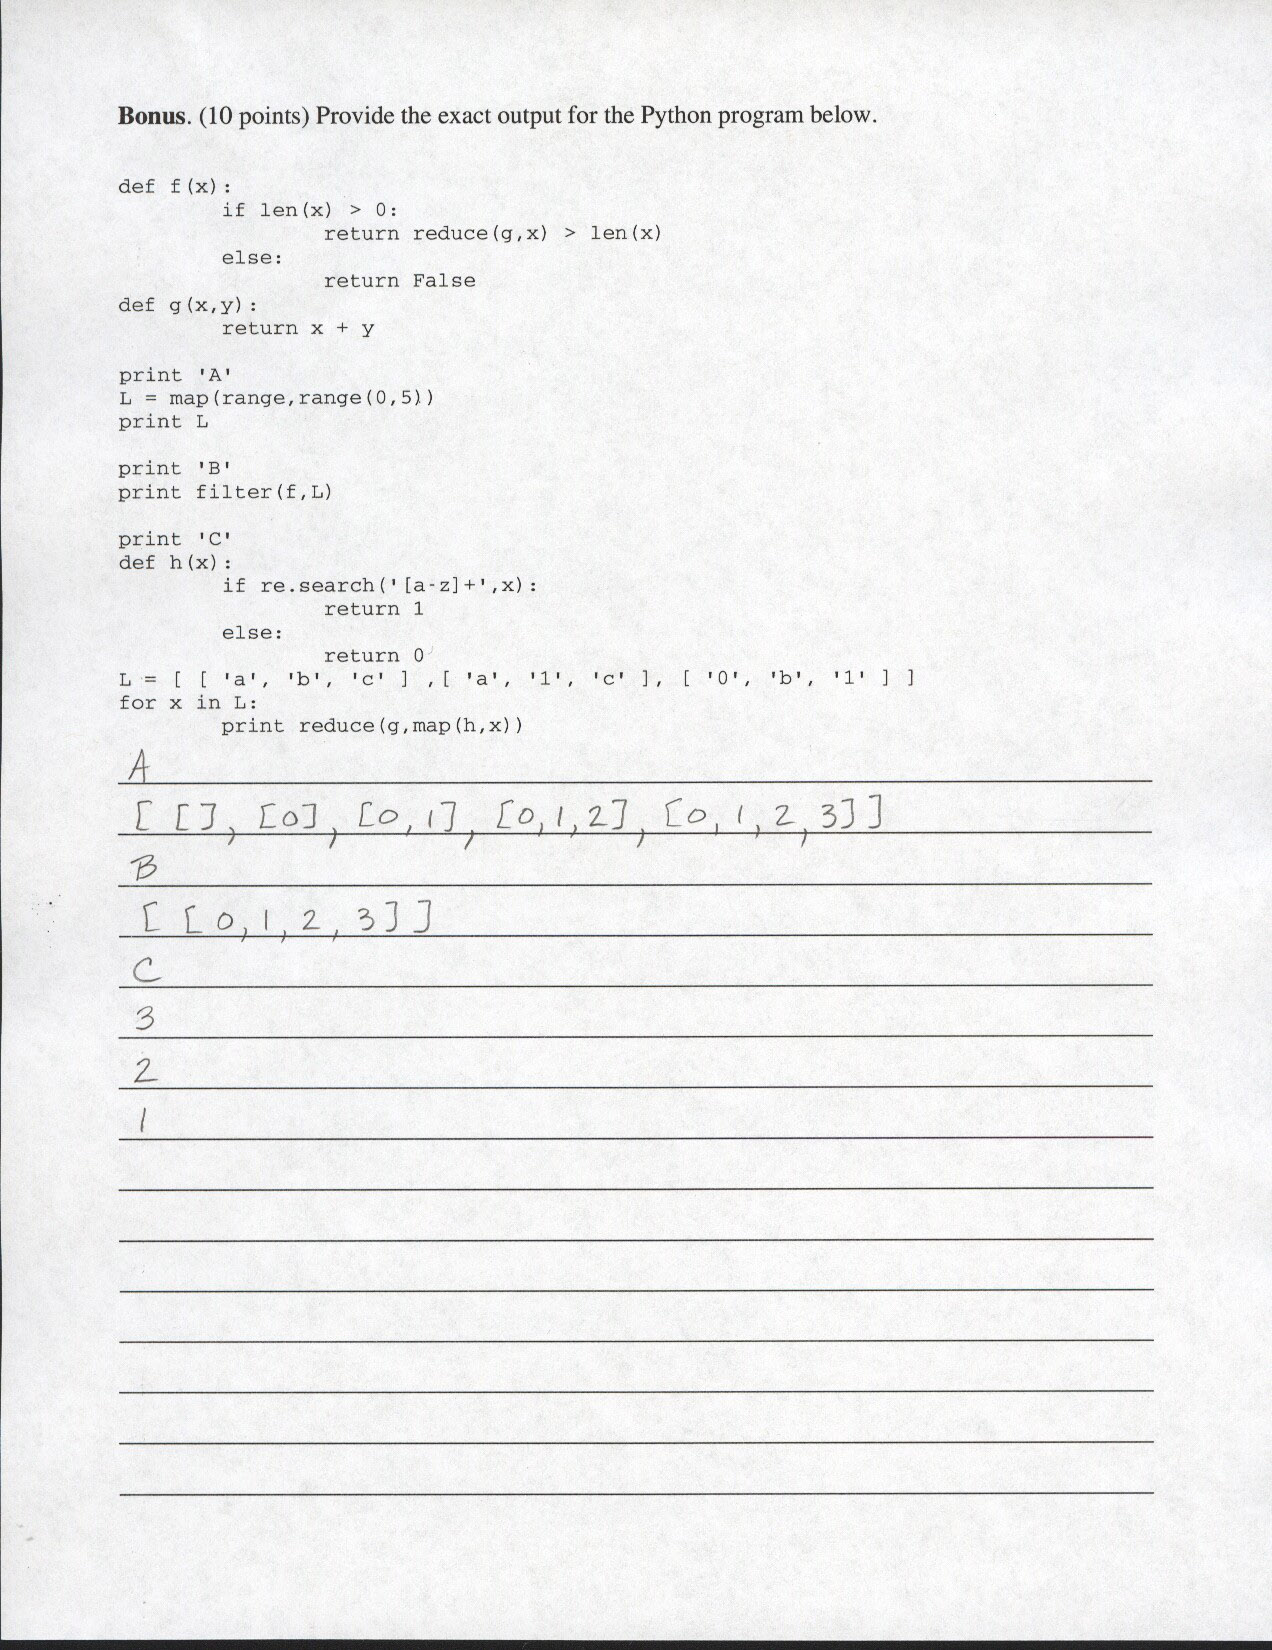 Bonus. (10 points) Provide the exact output for the Python program below.
def f(x):
        if len(x) > 0:
                return reduce(g,x) > len(x)
        else:
                return False
def g(x,y):
        return x + y
print 'A'
L = map(range,range(0,5))
print L
print 'B'
print filter(f,L)
print 'C'
def h(x):
        if re.search('[a-z]+',x):
                return 1
        else:
                return 0
L = [ [ 'a', 'b', 'c' ] ,[ 'a', '1', 'c' ], [ '0', 'b', '1' ] ]
for x in L:
        print reduce(g,map(h,x))
A
[ [], [0], [0,1], [0,1,2], [0,1,2,3]]
B
[ [0,1,2,3]]
C
3
2
1